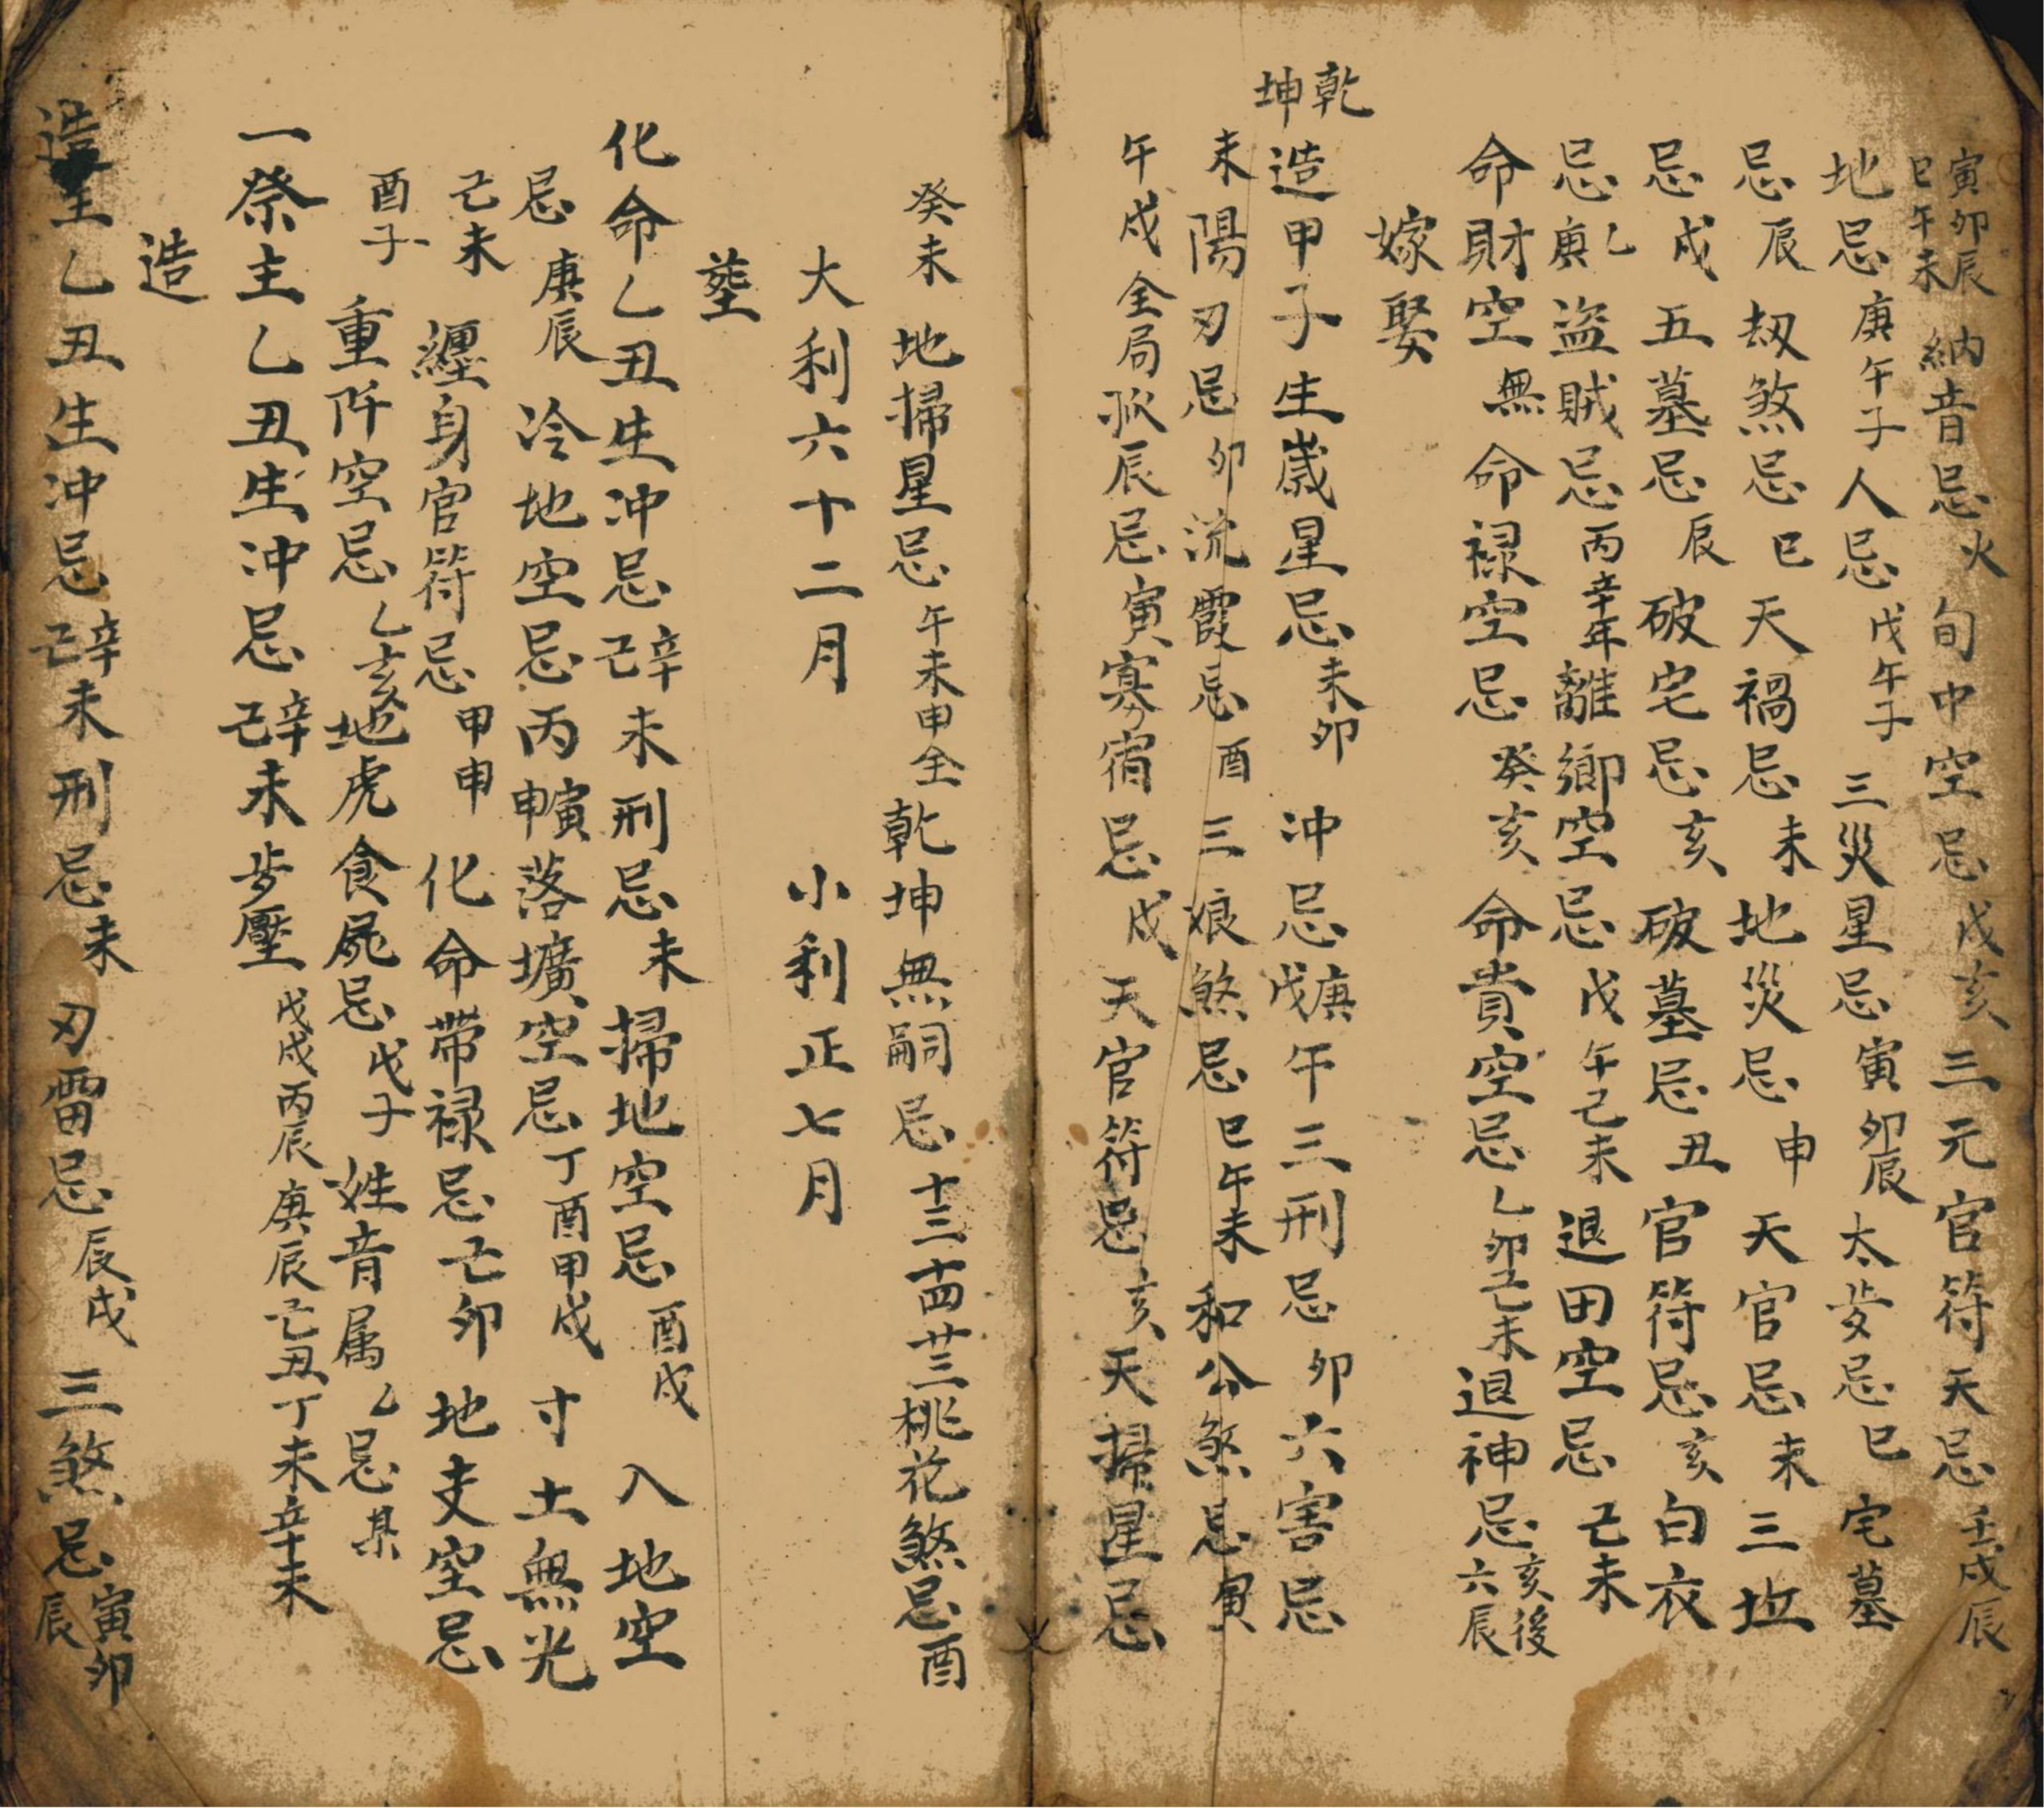 寅卯辰巳午未納音忌火旬中空忌戊亥三元官符天忌壬戌辰
地忌庚午子人忌戊午子三災星忌寅卯辰太岁忌巳宅墓
忌辰刼煞忌巳天禍忌未地災忌申天官忌未三地
忌戌五墓忌辰破宅忌亥破墓忌丑官符忌亥白衣
忌庚乙盜賊忌丙辛年離鄉空忌戊午己未退田空忌己未
命財空無命禄空忌癸亥命貴空忌乙卯己未退神忌亥後六辰
嫁娶
乾坤造甲子生歲星忌未卯冲忌庚戊午三刑忌卯六害忌
未陽刃忌卯流霞忌酉三娘煞忌巳午未和公煞忌寅
午戌全局孤辰忌寅寡宿忌戌天官符忌亥天掃星忌
癸未地掃星忌午未申全乾坤無嗣忌十三十四廿三桃花煞忌酉
大利六十二月小利正七月
塟
化命乙丑生冲忌辛己未刑忌未掃地空忌酉戌入地空
忌庚辰冷地空忌丙寅申落壙空忌丁酉甲戌寸土無光
己未纏身官符忌甲申化命带禄忌己卯地支空忌
酉子重阡空忌乙亥地虎食屍忌戊子姓音属乙忌某
一祭主乙丑生冲忌辛己未步壓戊戌丙辰庚辰己丑丁未辛未
造
造主乙丑生冲忌辛己未刑忌未刃雷忌辰戌三煞忌寅卯辰